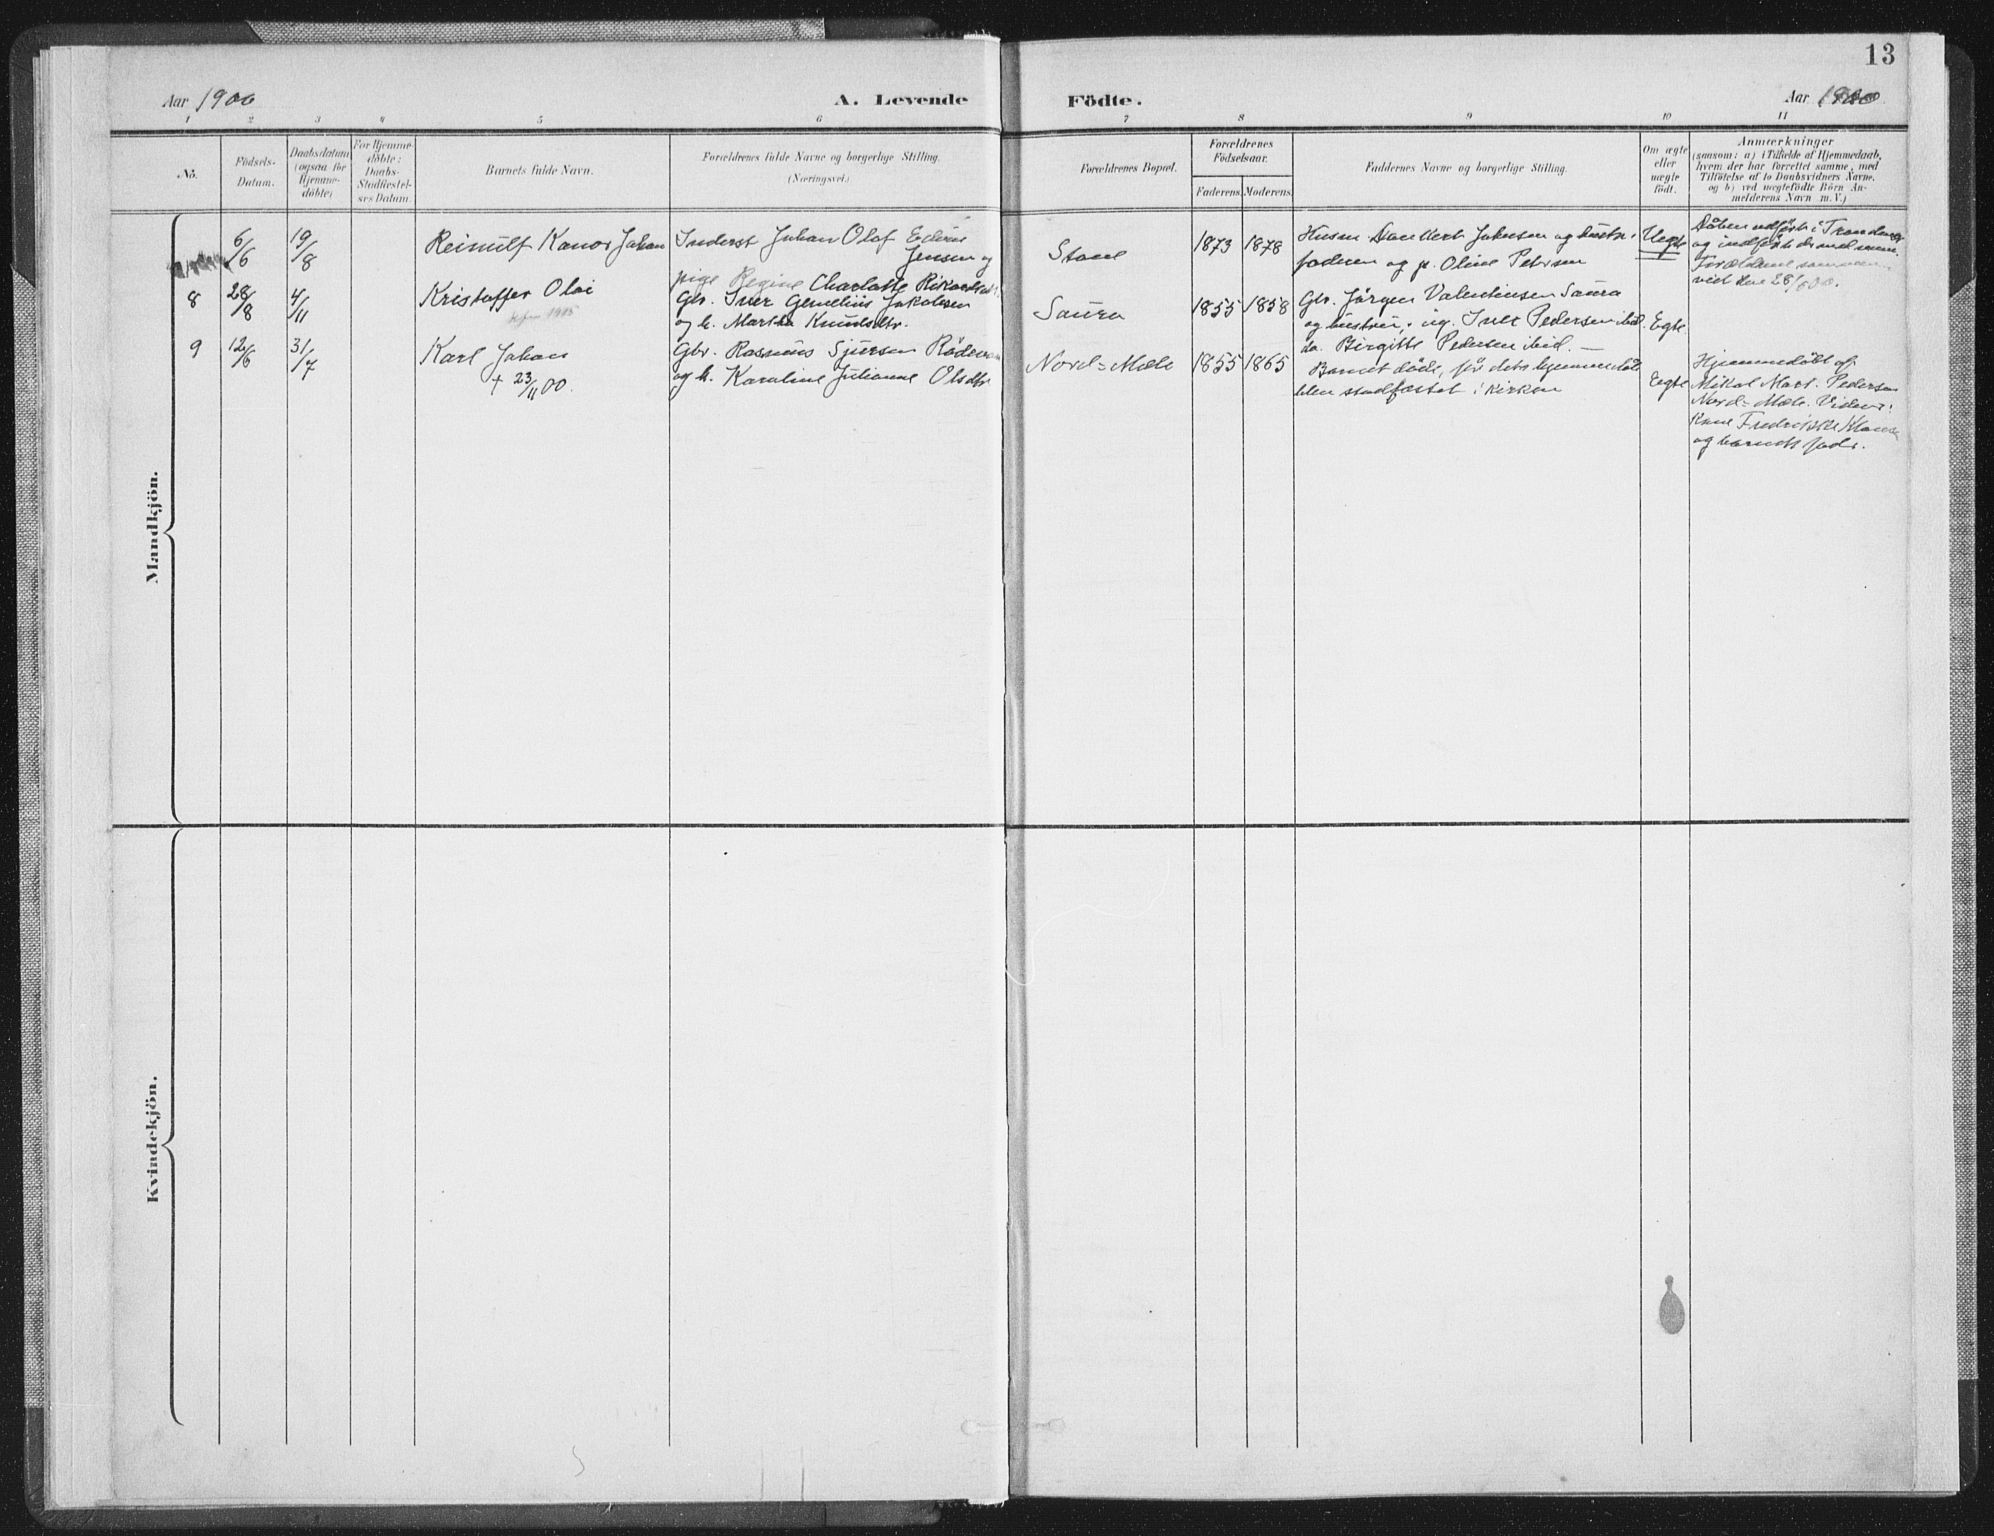 13
Aar 1900
A. Levende Födte.
Aar 1900
1 2 3 4 5 6 7 8 9 10 11
No.
Födsels-
Datum.
Daabsdatum
(ogsaa for
Hjemme-
döbte)
For Hjemme-
döbte:
Daabs-
Stadfæstel-
ses Datum.
Barnets fulde Navn.
Forældrenes fulde Navne og borgerlige Stilling.
(Næringsvei.)
Forældrenes Bopæl.
Forældrenes
Födselsaar.
Faderens. Moderens.
Faddernes Navne og borgerlige Stilling.
Om ægte
eller
uægte
födt.
Anmærkninger
(saasom: a) i Tilfælde af Hjemmedaab,
hvem der har forrettet samme, med
Tilföielse af to Daabsvidners Navne,
og b) ved uægtefödte Börn An-
melderens Navn m. V.)
Mandkjön.
6/6 19/8
Reinulf Kanor Johan
Inderst Johan Olaf
Jensen og
pige Regine Charlotte
Stane
1873 1878
Husm. Jakobsen og hustr.
faderen og p. Oline Petersen
Uegte
Döben udfört i Trondenes
og indföres
Forældrene
vied den 28/
8 28/8 4/11
Kristoffer Olai
1915
Gbr. Iver Jakobsen
og h. Martha Knudsdtr.
Saura
1855 1858
Gbr. Jörgen Valentinsen Saura
og hustru, ug. Pedersen ibid.
do. Birgitte Pedersen ibid. —
Egte
9 12/6 31/7
Karl Johan
+ 23/11 00.
Gbr. Rasmus Sjursen
og h. Karoline Julianne Olsdtr
Nord-Mæle
1855 1865
Barnet döde, för dets hjemmedåb
blev stadfæstet i kirken
Egte
Hjemmedöbt af
Mikal Mart. Pedersen
Nord-Mæle. Vidner:
Kone Fredrikke
og barnets fader.
Kvindekjön.